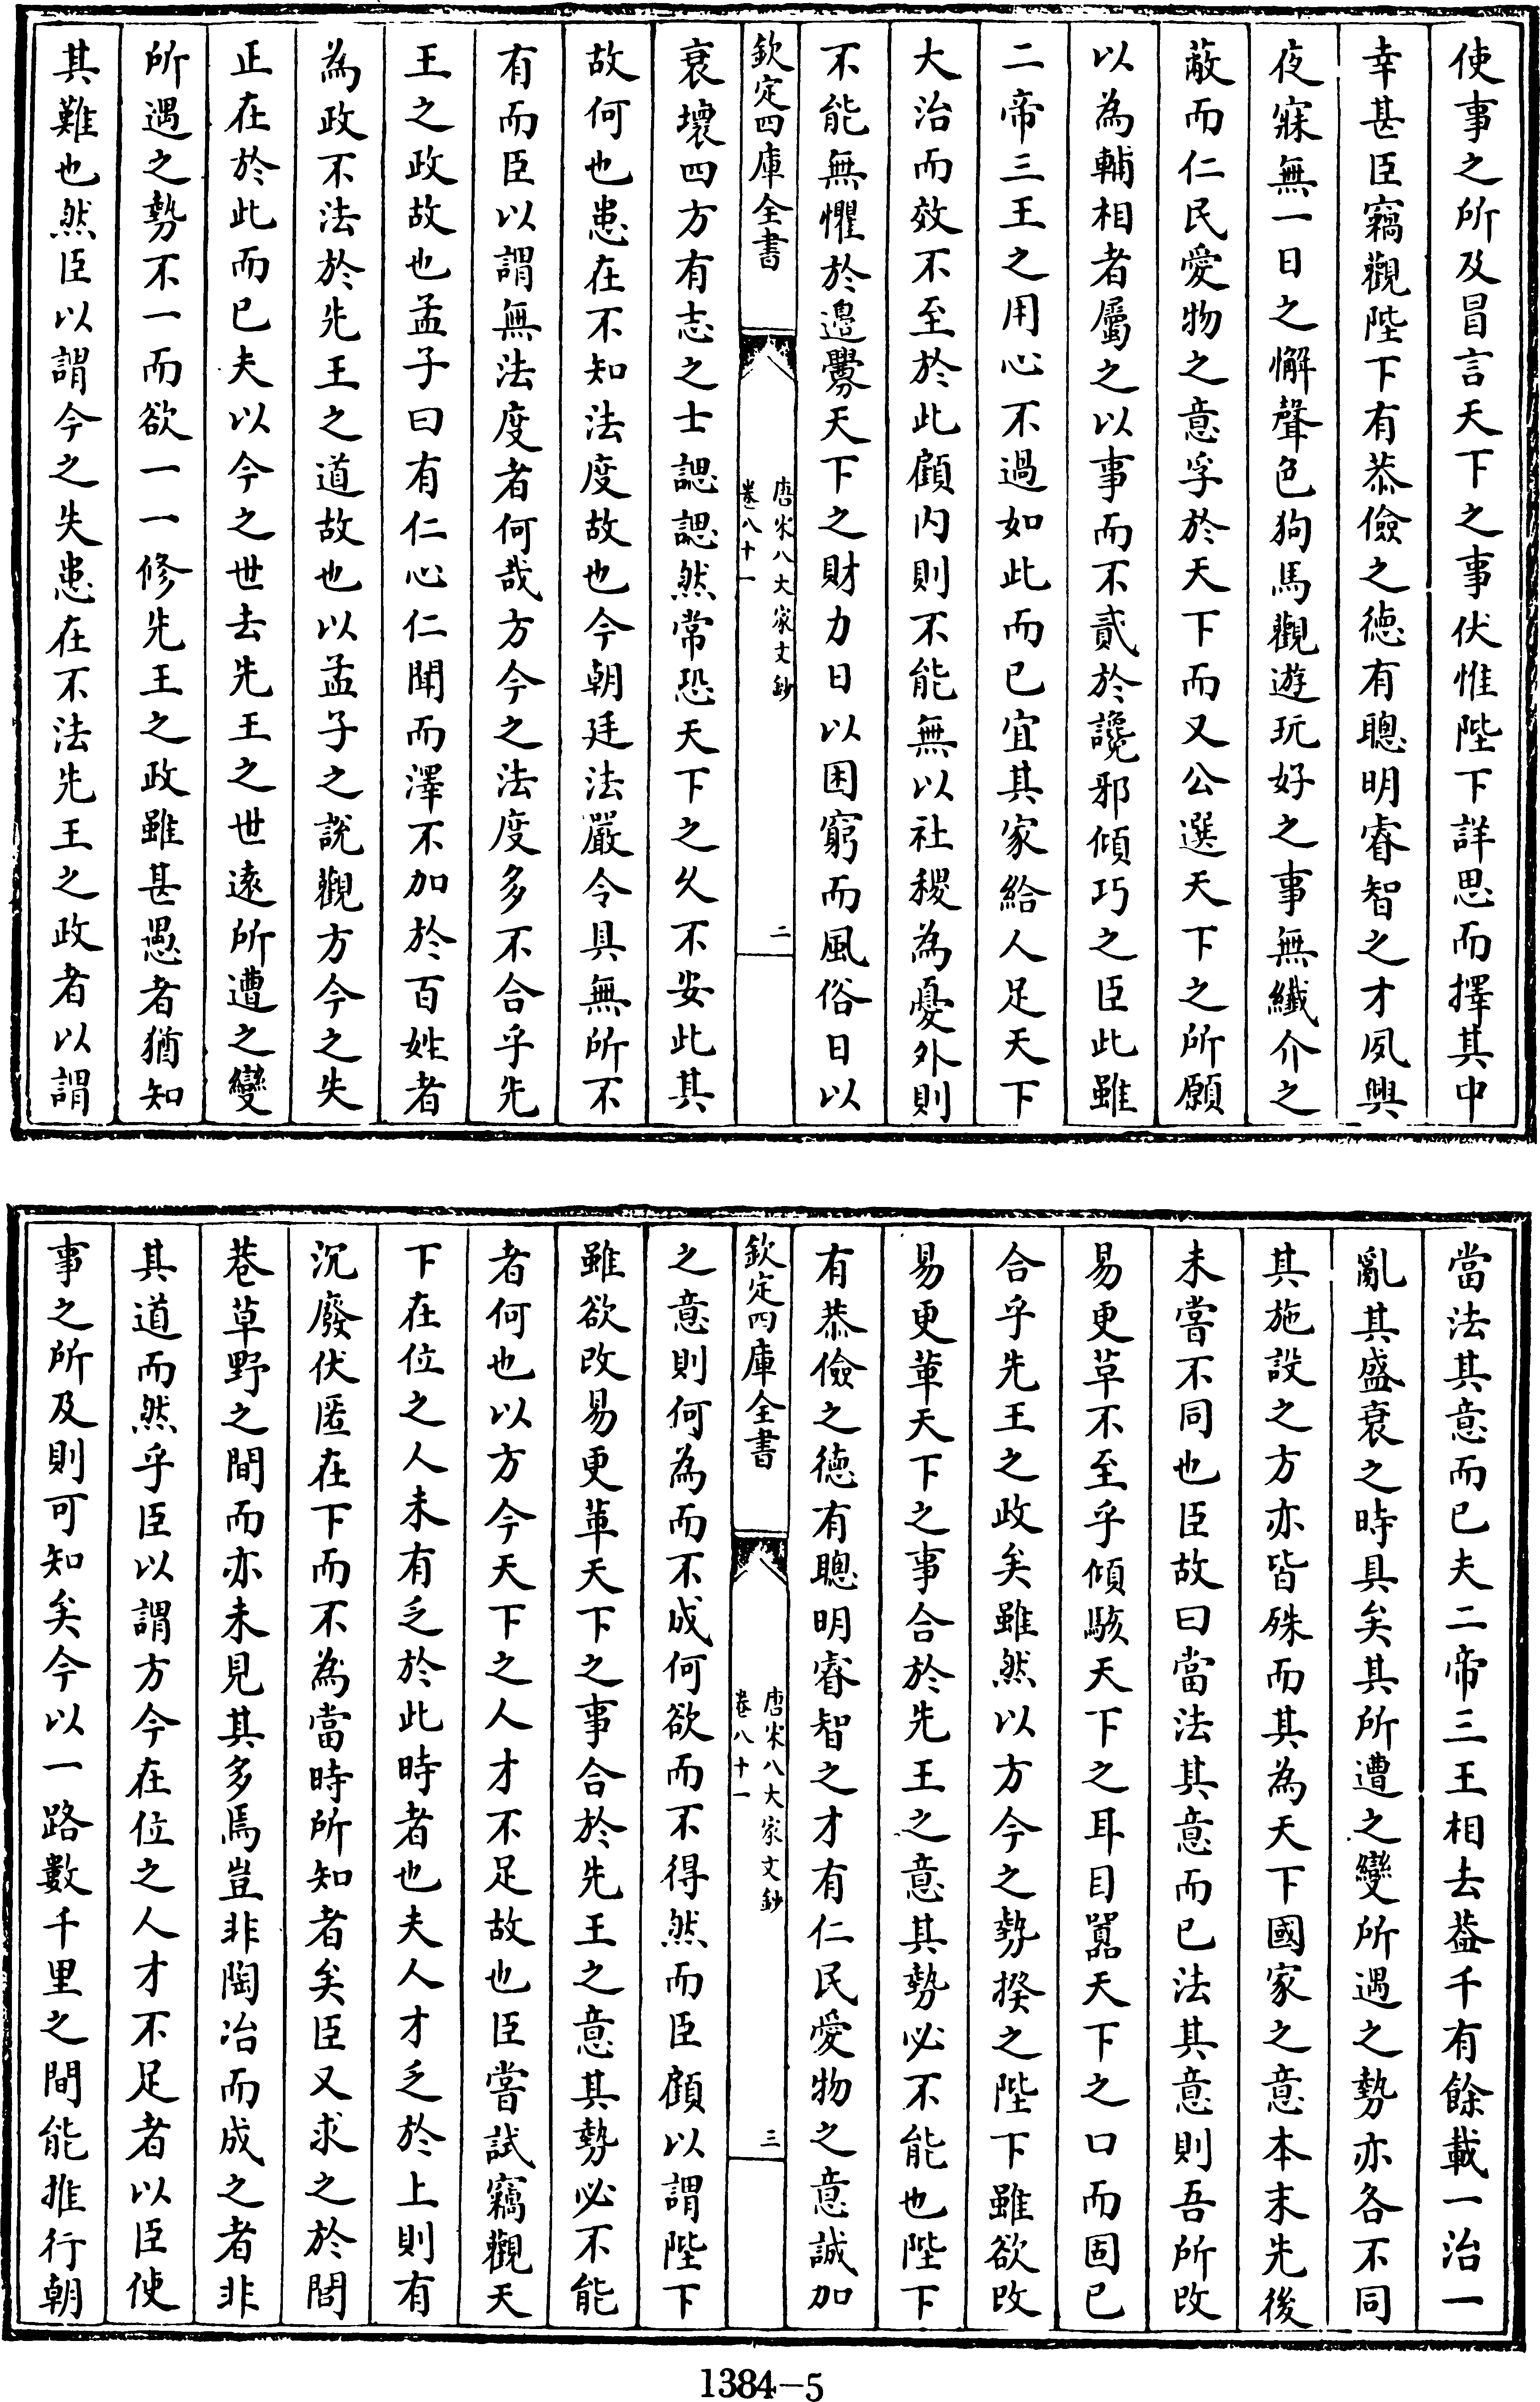 使事之所及冒言天下之事伏惟陛下詳思而擇其中
幸甚臣竊觀陛下有恭儉之德有聰明睿智之才夙興
夜寐無一日之懈聲色狗馬觀遊玩好之事無纖介之
蔽而仁民愛物之意孚於天下而又公選天下之所願
以為輔相者屬之以事而不貳於讒邪傾巧之臣此雖
二帝三王之用心不過如此而已宜其家給人足天下
大治而效不至於此顧内則不能無以社稷為憂外則
不能無懼於邉釁天下之財力日以困窮而風俗日以
欽定四庫全書
唐宋八大家文鈔
卷八十一
二
衰壞四方有志之士諰諰然常恐天下之乆不安此其
故何也患在不知法度故也今朝廷法嚴令具無所不
有而臣以謂無法度者何哉方今之法度多不合乎先
王之政故也孟子曰有仁心仁聞而澤不加於百姓者
為政不法於先王之道故也以孟子之説觀方今之失
正在於此而已夫以今之世去先王之世逺所遭之變
所遇之勢不一而欲一一修先王之政雖甚愚者猶知
其難也然臣以謂今之失患在不法先王之政者以謂
當法其意而已夫二帝三王相去葢千有餘載一治一
亂其盛衰之時具矣其所遭之變所遇之勢亦各不同
其施設之方亦皆殊而其為天下國家之意本末先後
未嘗不同也臣故曰當法其意而已法其意則吾所改
易更革不至乎傾駭天下之耳目囂天下之口而固已
合乎先王之政矣雖然以方今之勢揆之陛下雖欲改
易更革天下之事合於先王之意其勢必不能也陛下
有恭儉之德有聰明睿智之才有仁民愛物之意誠加
欽定四庫全書
唐宋八大家文鈔
卷八十一
三
之意則何為而不成何欲而不得然而臣顧以謂陛下
雖欲改易更革天下之事合於先王之意其勢必不能
者何也以方今天下之人才不足故也臣嘗試竊觀天
下在位之人未有乏於此時者也夫人才乏於上則有
沉廢伏匿在下而不為當時所知者矣臣又求之於閭
巷草野之間而亦未見其多焉豈非陶冶而成之者非
其道而然乎臣以謂方今在位之人才不足者以臣使
事之所及則可知矣今以一路數千里之間能推行朝
1384-5